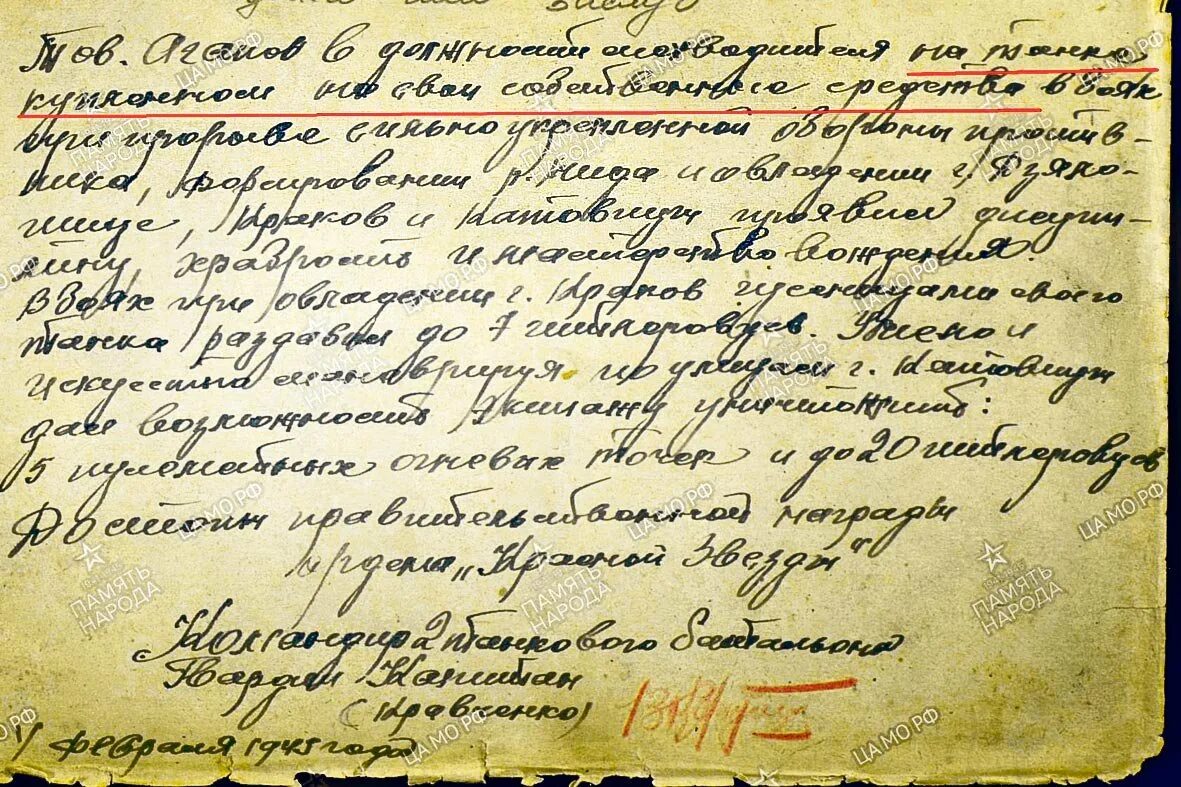 Тов. Агапов в должности мехводителя на танке
купленном на свои собственные средства в боях
при прорыве сильно укрепленной обороны против-
ника, форсировании р. Нида и овладении г. Дзяло-
шице, Краков и Катовицы проявил дисцип-
лину, храбрость и мастерство вождения.
В боях при овладении г. Краков гусеницами своего
танка раздавил до 7 гитлеровцев. Умело и
искусстно маневрируя по улицам г. Катовицы
дал возможность экипажу уничтожить:
5 пулеметных огневых точек и до 20 гитлеровцев
Достоин правительственной награды
ордена „Красной Звезды"
Командир 2 танкового батальона
Гвардии Капитан
(Кравченко)
февраля 1945 года
ПАМЯТЬ НАРОДА
ЦАМО.РФ